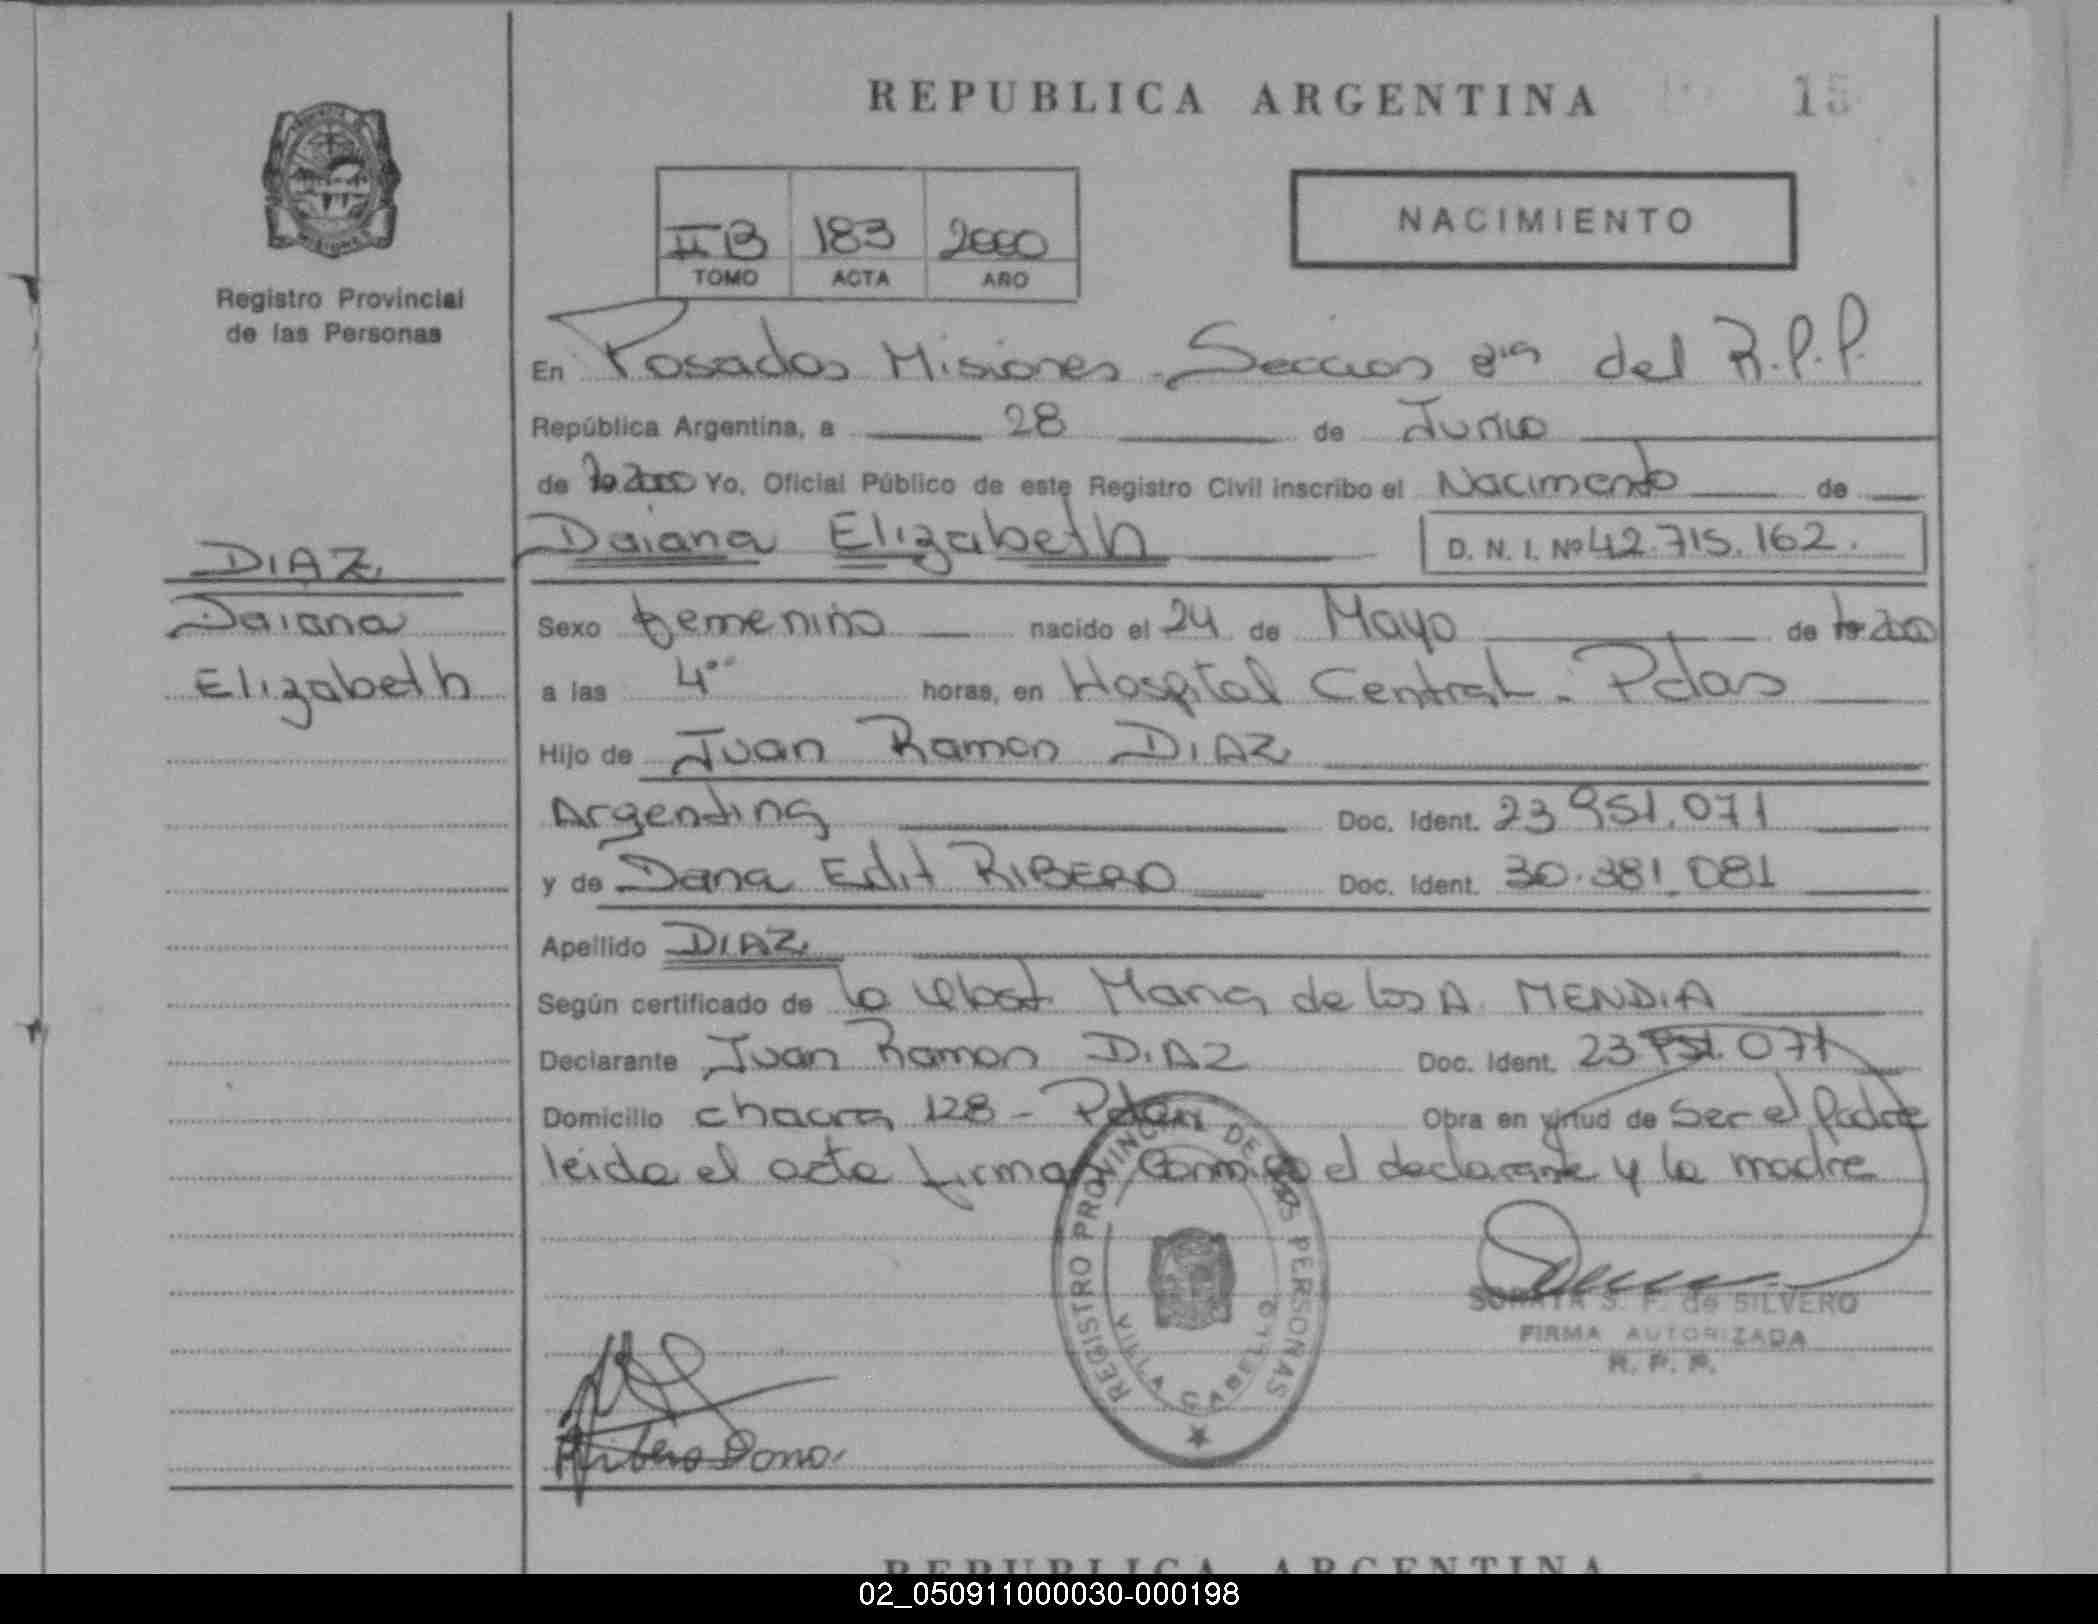 REPUBLICA ARGENTINA 15
Registro Provincial
de las Personas
II B 183 2000
TOMO ACTA AÑO
NACIMIENTO
En Posadas Misiones - Seccion 8va del R.P.P.
República Argentina, a 28 de Junio
de 2000 Yo, Oficial Público de este Registro Civil inscribo el Nacimiento de
Daiana Elizabeth D. N. I. Nº 42.715.162.
DIAZ
Daiana
Elizabeth
Sexo femenino nacido el 24 de Mayo de 2000
a las 4 horas, en Hospital Central - Pdas
Hijo de Juan Ramon DIAZ
Argentina Doc. Ident. 23.951.071
y de Dana Edit RIBERO Doc. Ident. 30.381.081
Apellido DIAZ
Según certificado de la Obst. Maria de los A. MENDIA
Declarante Juan Ramon DIAZ Doc. Ident. 23.951.071
Domicilio chacra 128 - Pdas Obra en virtud de Ser el Padre
leida el acta firman conmigo el declarante y la madre
REGISTRO PROVINCIAL DE LAS PERSONAS
VILLA CABELLO
SORAYA S. F. de SILVERO
FIRMA AUTORIZADA
R. P. P.
Ribero Dana
REPUBLICA ARGENTINA
02_050911000030-000198